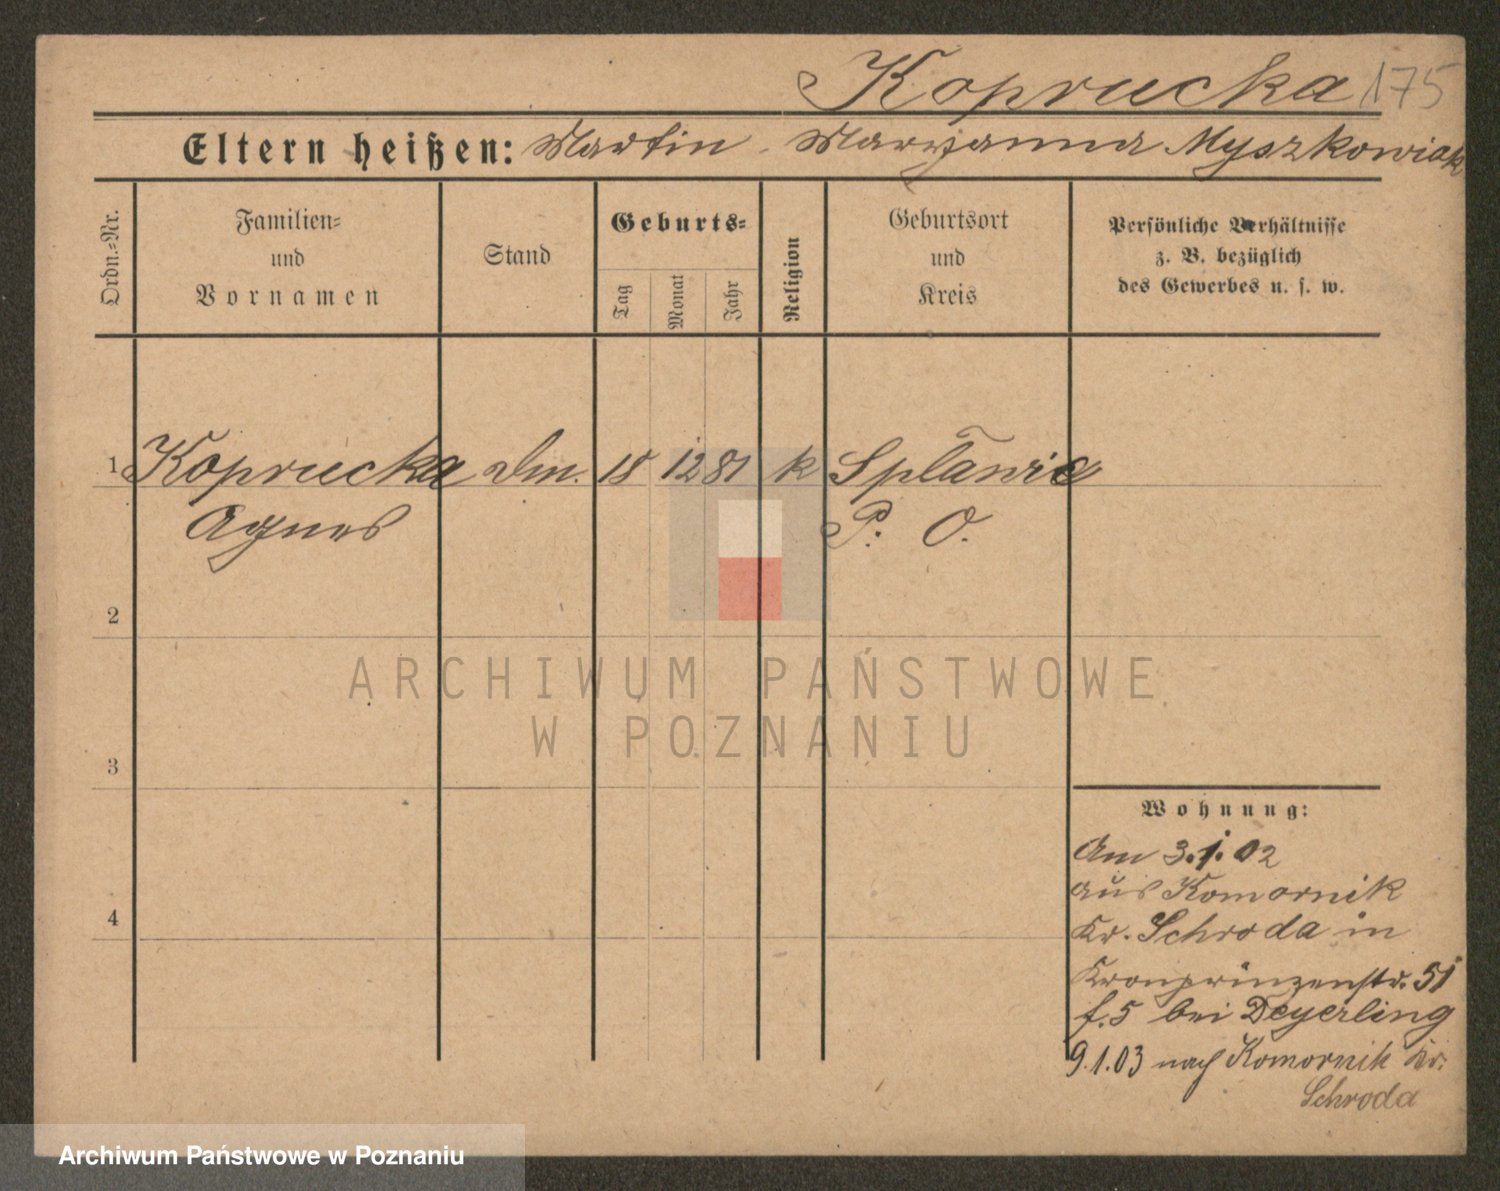 Koprucka 175
Eltern heißen: Martin Maryanna Myszkowiak
Ordn.=Nr.
Familien=
und
Vornamen
Stand
Geburts=
Tag
Monat
Jahr
Religion
Geburtsort
und
Kreis
Persönliche Verhältnisse
z. B. bezüglich
des Gewerbes u. s. w.
1 Koprucka Dm. 18 12 81 k Splawie
Agnes P. O.
2
3
4
ARCHIWUM PAŃSTWOWE
W POZNANIU
Wohnung:
Am 3.1.02
aus Komornik
Kr. Schroda in
Kronprinzenstr. 51
f. 5 bei Deyerling
9.1.03 nach Komornik Kr.
Schroda
Archiwum Państwowe w Poznaniu